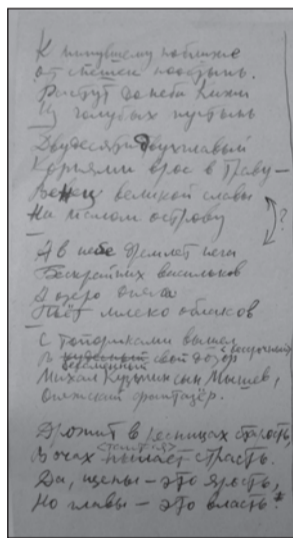 К минувшему поближе
от спешки поостынь.
Растут до неба Кижи
Из голубых пустынь
Двудесятидвухглавый
Корнями врос в траву —
Венец великой славы
На малом острову
?
А в небе дремлет нега
Бескрайних васильков
А озеро Онега
Пьёт млеко облаков
С топориками вышел
В свой дозор
Михал Кузьмин сын Мышев,
Онежский фантазёр.
Дрожит в ресницах старость,
В очах пылает страсть.
Да, щепы — это ярость,
Но главы — это власть!